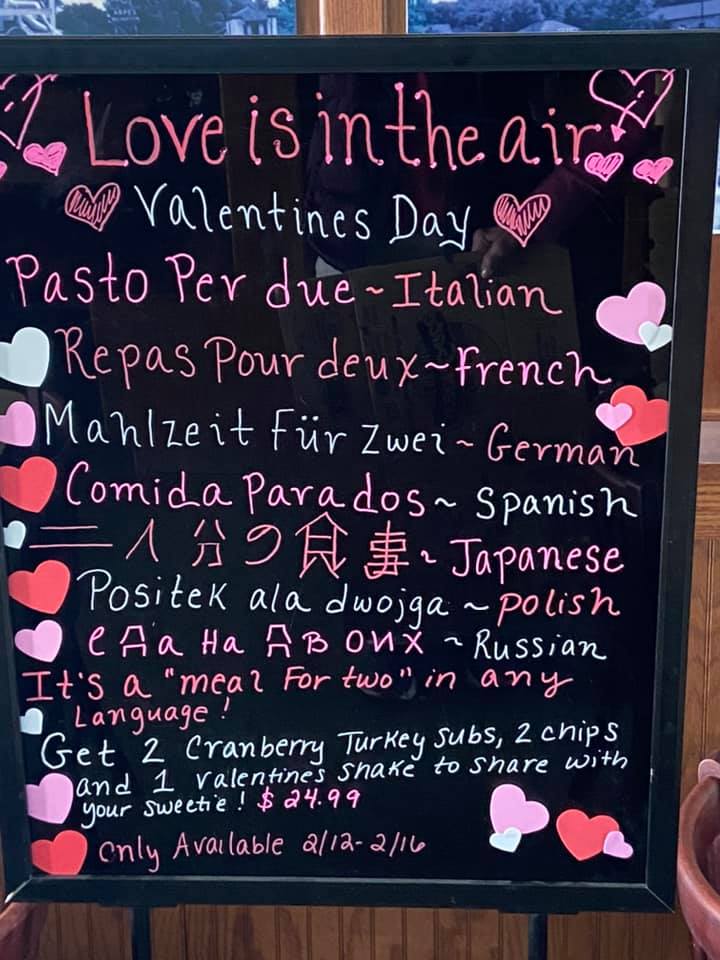 Love is in the air
Valentines Day
Pasto Per due ~ Italian
Repas Pour deux ~ French
Mahlzeit Für Zwei ~ German
Comida Para dos ~ Spanish
二人分の食事 ~ Japanese
Positek ala dwojga ~ polish
еда на двоих ~ Russian
It's a "meal For two" in any
Language!
Get 2 Cranberry Turkey subs, 2 chips
and 1 valentines shake to share with
your sweetie! $24.99
only Available 2/12-2/16